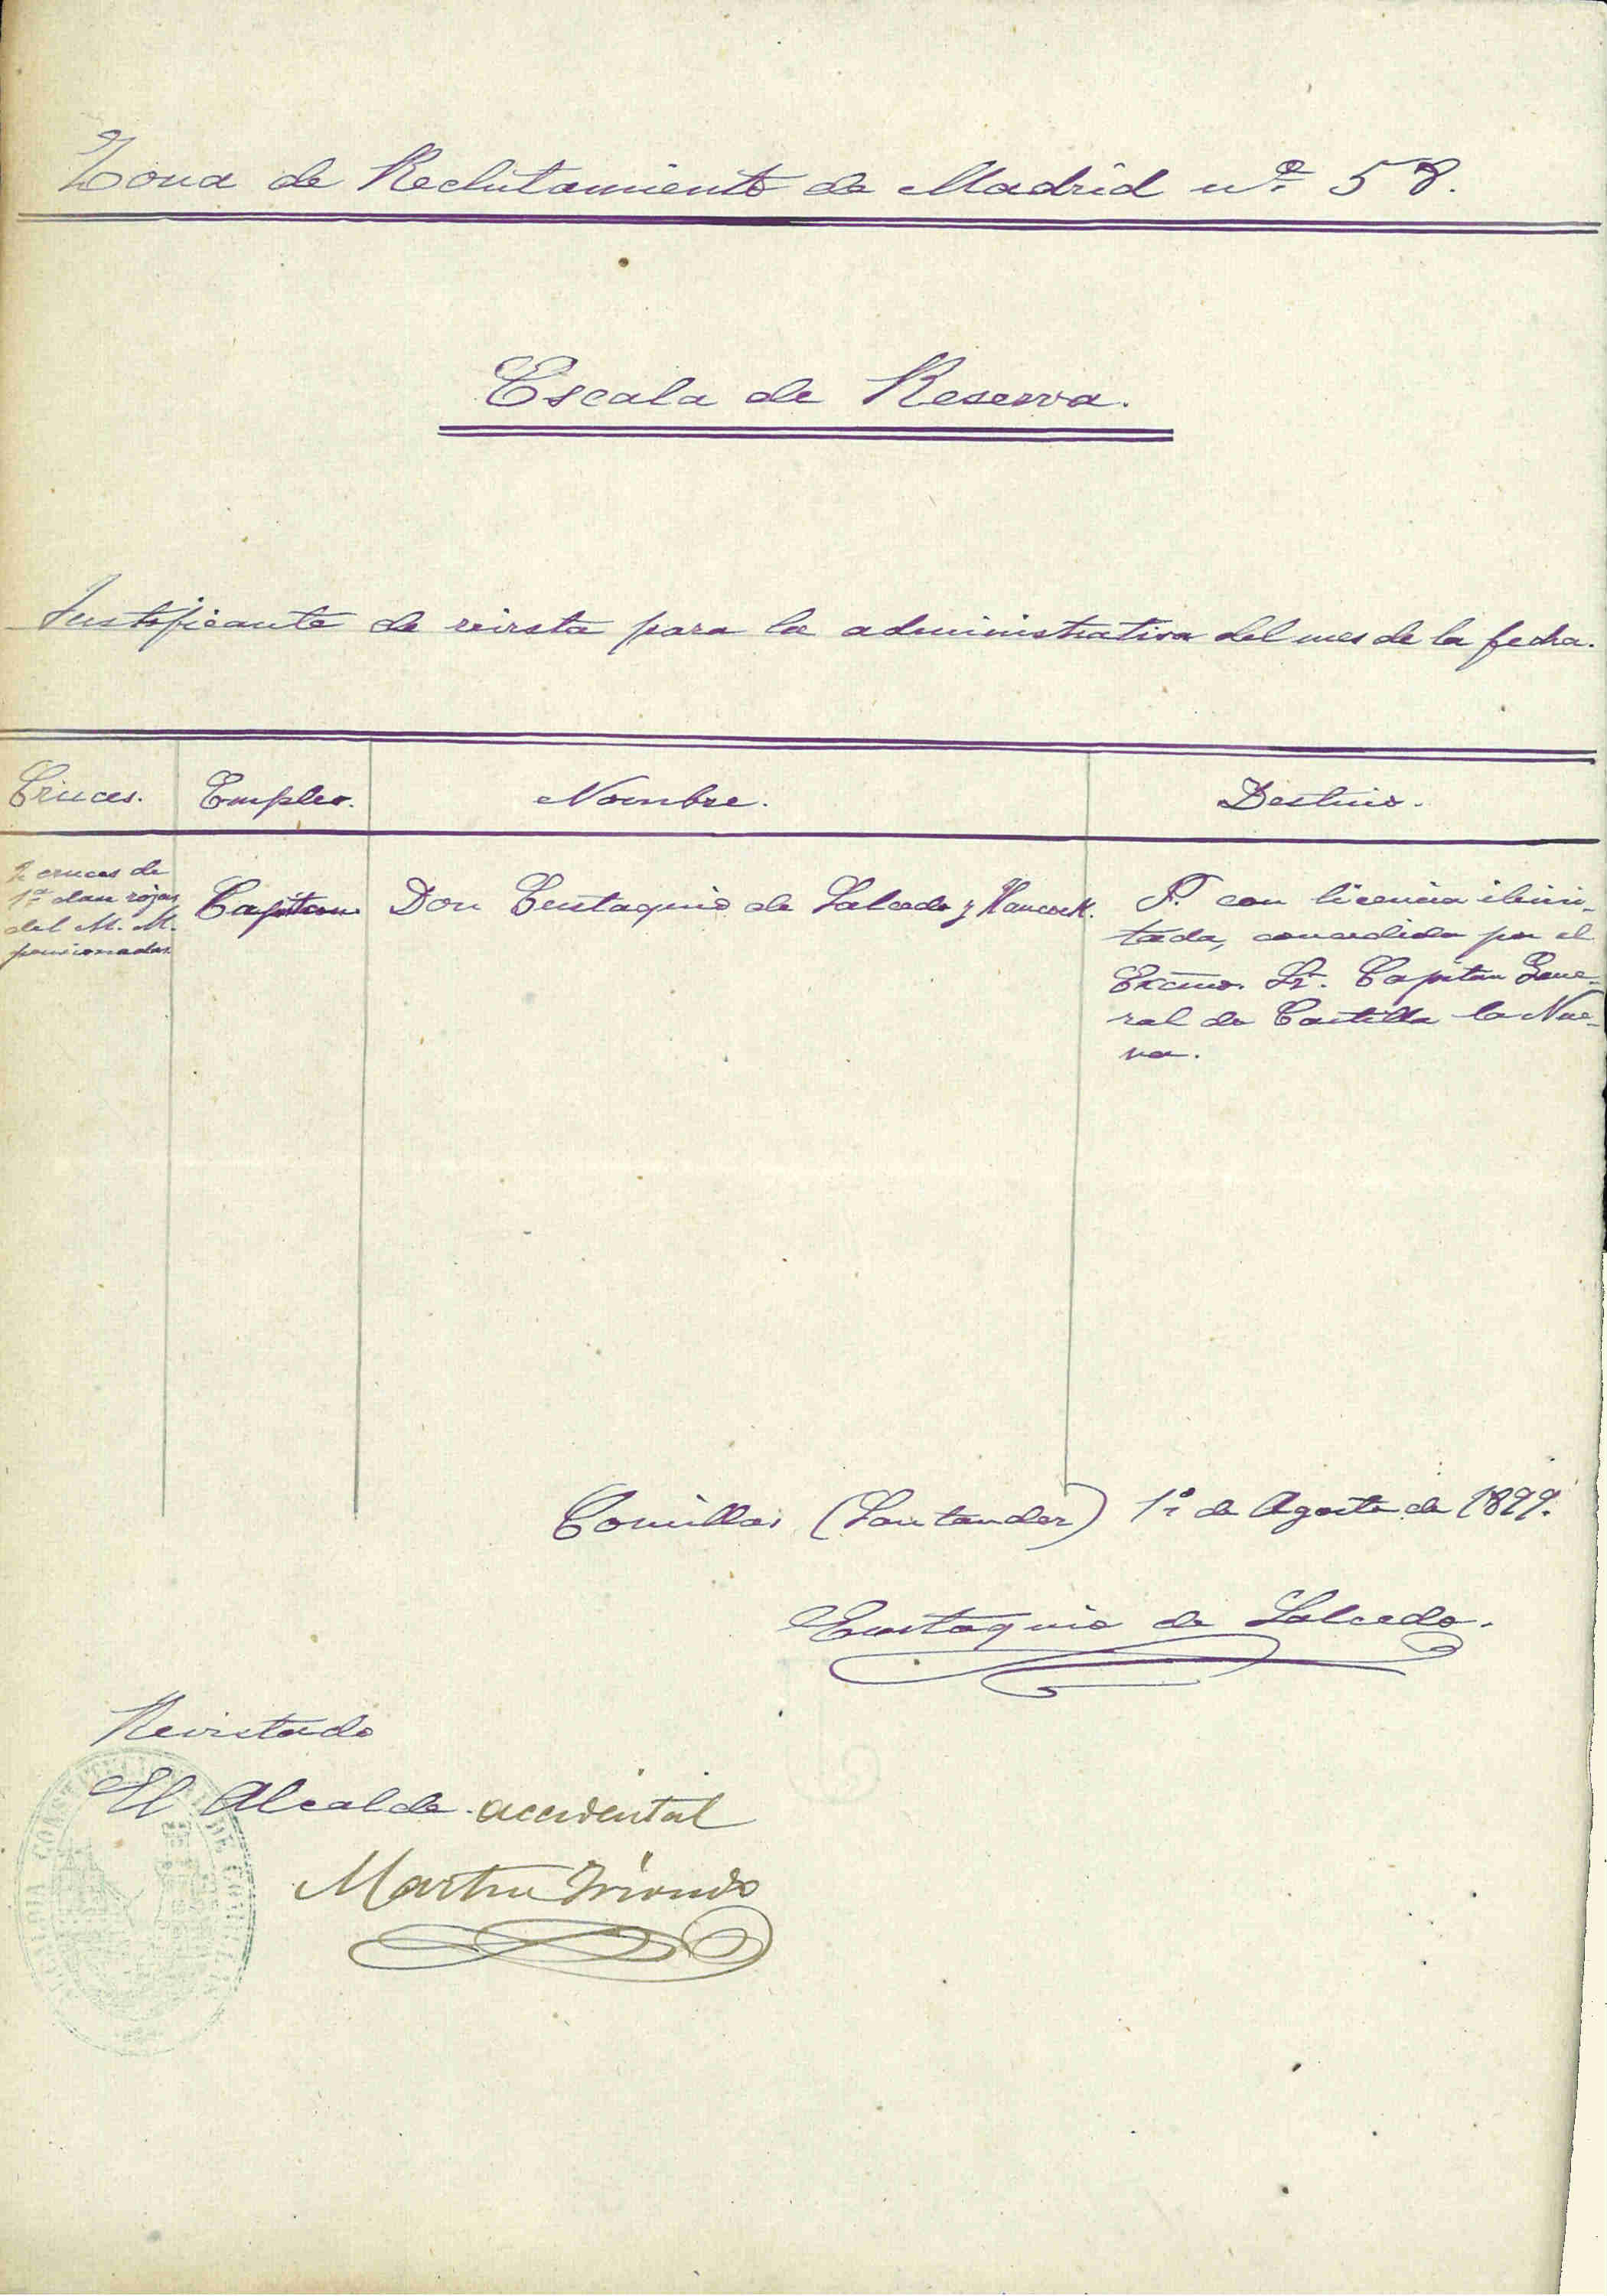 Zona de Reclutamiento de Madrid nº 58.
Escala de Reserva.
Justificante de revista para la administrativa del mes de la fecha.
Cruces. Empleo. Nombre. Destino.
2 cruces de
1ª clase rojas
del M. M.
pensionadas
Capitan
Don Eustaquio de Salcedo y Hancock.
P. con licencia ilimi-
tada, concedida por el
Excmo. Sr. Capitan Gene-
ral de Castilla la Nue-
va.
Comillas (Santander) 1º de Agosto de 1899.
Eustaquio de Salcedo.
Revistado
El Alcalde accidental
Martin
ALCALDIA CONSTITUCIONAL DE COMILLAS